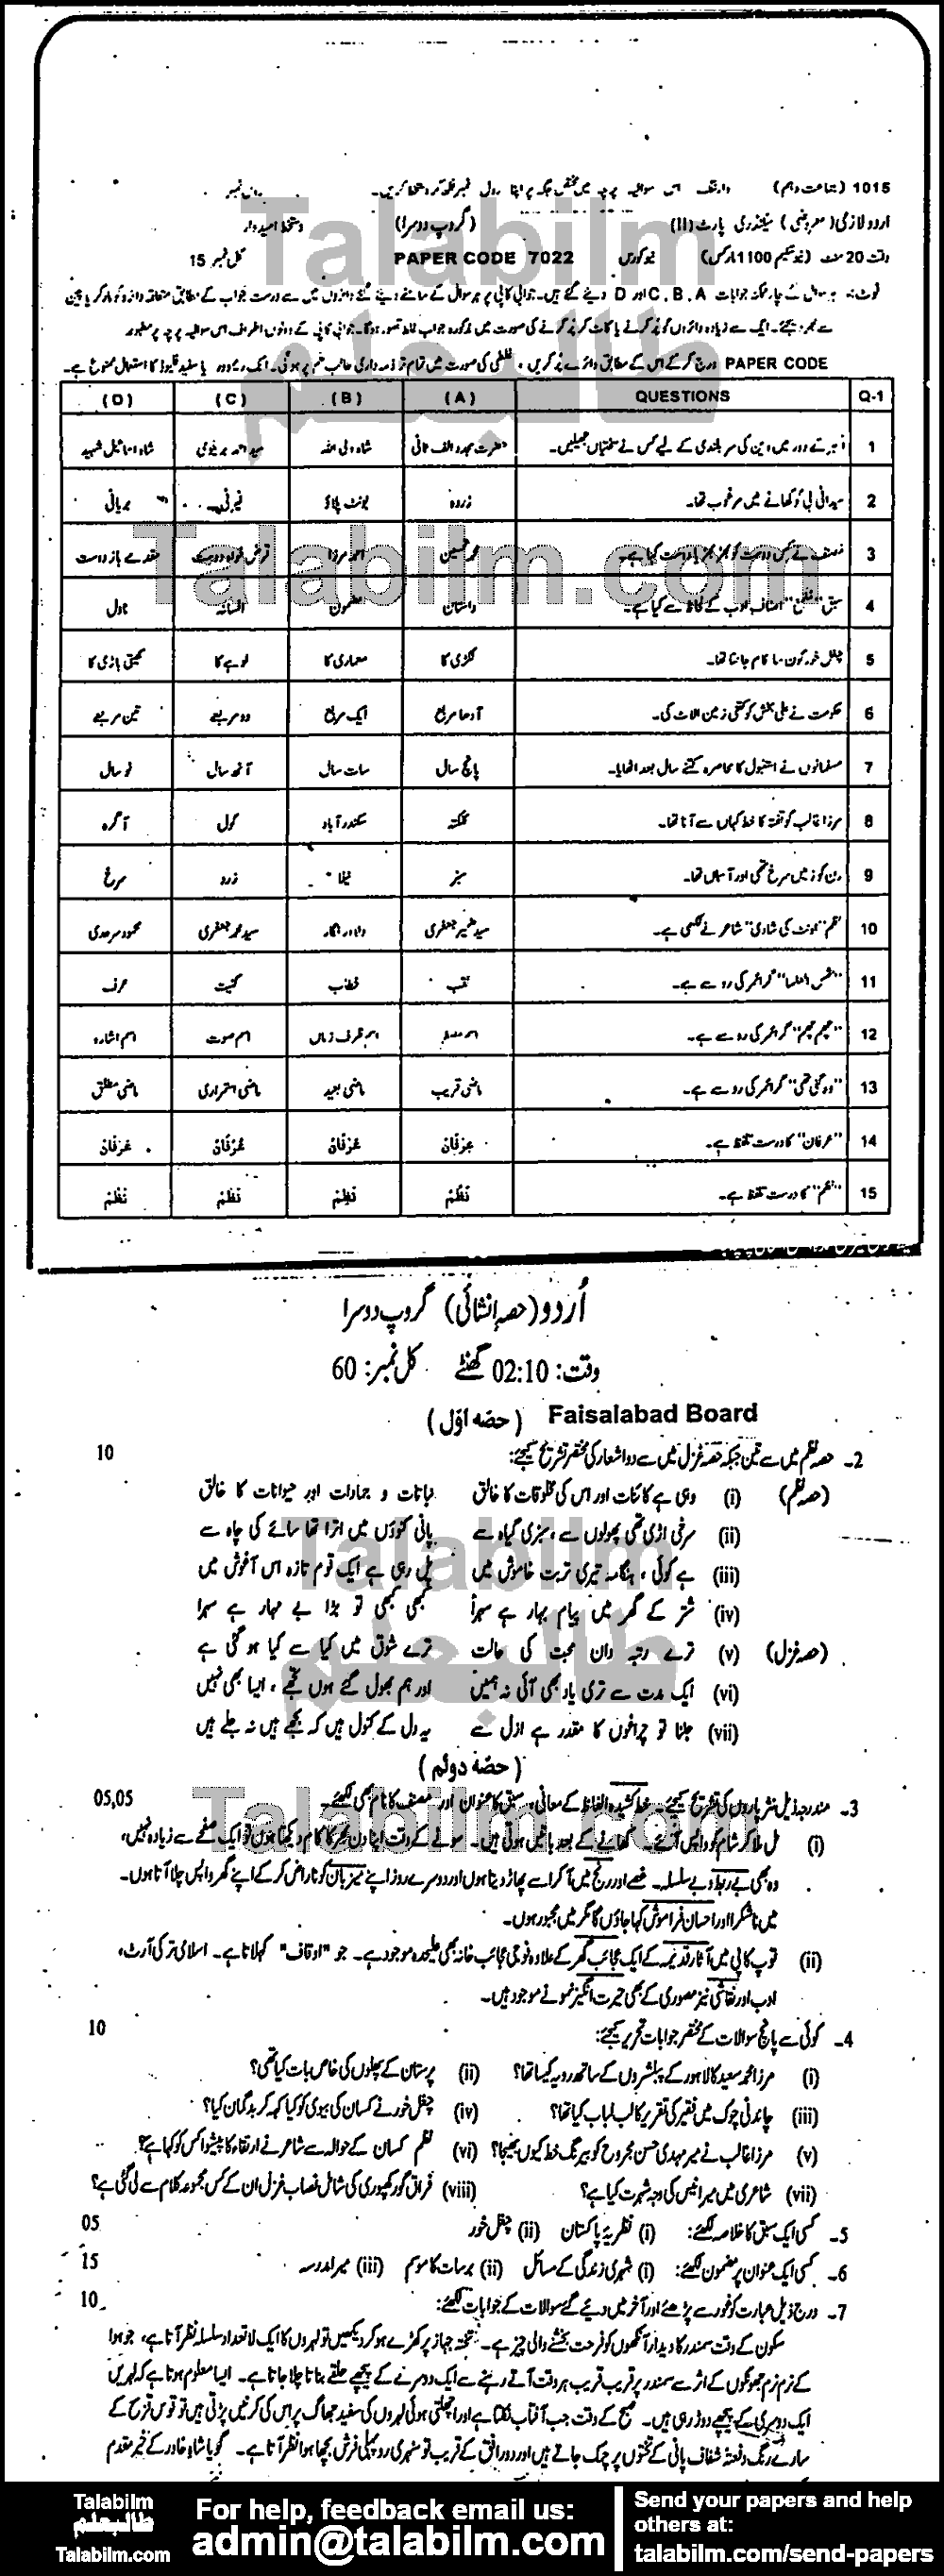 1015 (جماعت دہم) وارننگ اس سوالیہ پرچہ میں مختص جگہ پر اپنا رول نمبر لکھ کر دستخط کریں۔ رول نمبر
اردو لازمی (معروضی) سیکنڈری پارٹ (II) (گروپ دوسرا) دستخط امیدوار
وقت 20 منٹ (نیو سکیم 1100 مارکس) نیو کورس PAPER CODE 7022 کل نمبر 15
نوٹ: ہر سوال کے چار ممکنہ جوابات A ، B ، C اور D دیئے گئے ہیں۔ جوابی کاپی پر ہر سوال کے سامنے دیئے گئے دائروں میں سے درست جواب کے مطابق متعلقہ دائرہ کو مارکر یا پین
سے بھر دیجئے۔ ایک سے زیادہ دائروں کو پُر کرنے یا کاٹ کر پُر کرنے کی صورت میں مذکورہ جواب غلط تصور ہوگا۔ جوابی کاپی کے دونوں اطراف اس سوالیہ پرچہ پر مطبوعہ
PAPER CODE درج کر کے اس کے مطابق دائرے پُر کریں ، غلطی کی صورت میں تمام تر ذمہ داری طالب علم پر ہوگی۔ انک ریموور یا سفید فلیوڈ کا استعمال ممنوع ہے۔
Q-1 QUESTIONS (A) (B) (C) (D)
1 دور میں دین کی سربلندی کے لیے کس نے سختیاں جھیلیں۔ حضرت مجدد الف ثانی شاہ ولی اللہ سید احمد بریلوی شاہ اسماعیل شہید
2 میدانی بی کو کھانے میں مرغوب تھا۔ زردہ بونٹ پلاؤ فیرنی بریانی
3 مصنف نے کس دوست کو بھڑبھڑیا دوست کہا ہے۔ محمد تحسین احمد مرزا قرض خواہ دوست مقدمے باز دوست
4 سبق اصناف ادب کے لحاظ سے کیا ہے۔ داستان مضمون افسانہ ناول
5 چغل خور کون سا کام جانتا تھا۔ لکڑی کا معماری کا لوہے کا کھیتی باڑی کا
6 حکومت نے علی بخش کو کتنی زمین الاٹ کی۔ آدھا مربع ایک مربع دو مربعے تین مربعے
7 مسلمانوں نے استنبول کا محاصرہ کتنے سال بعد اٹھایا۔ پانچ سال سات سال آٹھ سال نو سال
8 مرزا غالب کو تفتہ کا خط کہاں سے آتا تھا۔ کلکتہ سکندر آباد کول آگرہ
9 رن کو زمیں سرخ تھی اور آسماں تھا۔ سبز نیلا زرد سرخ
10 نظم "اونٹ کی شادی" شاعر نے لکھی ہے۔ سید ضمیر جعفری دلاور فگار سید محمد جعفری محمود سرحدی
11 "شمس العلما" گرائمر کی رو سے ہے۔ لقب خطاب کنیت عرف
12 "چھم چھم" گرائمر کی رو سے ہے۔ اسم مصغر اسم ظرف زماں اسم صوت اسم اشارہ
13 "وہ گئی تھی" گرائمر کی رو سے ہے۔ ماضی قریب ماضی بعید ماضی استمراری ماضی مطلق
14 "عرفان" کا درست تلفظ ہے۔ عِرْفَان عَرْفَان عُرْفَان عَرْفَان
15 "نظم" کا درست تلفظ ہے۔ نَظُمْ نَظِمْ نَظَمْ نَظْمْ
اُردو (حصہ انشائی) گروپ دوسرا
وقت: 02:10 گھنٹے کل نمبر: 60
Faisalabad Board (حصّہ اوّل)
2۔ حصہ نظم میں سے تین جبکہ حصہ غزل میں سے دو اشعار کی مختصر تشریح کیجئے: 10
(حصہ نظم) (i) وہی ہے کائنات اور اس کی مخلوقات کا خالق نباتات و جمادات اور حیوانات کا خالق
(ii) سرخی اڑی تھی پھولوں سے ، سبزی گیاہ سے پانی کنوؤں میں اترا تھا سائے کی چاہ سے
(iii) ہے کوئی ، ہنگامہ تیری تربت خاموش میں پل رہی ہے ایک قوم تازہ اس آغوش میں
(iv) شتر کے گھر میں پیام بہار ہے سہرا کبھی کبھی تو بڑا بے مہار ہے سہرا
(حصہ غزل) (v) ترے رتبہ دان محبت کی حالت ترے شوق میں کیا سے کیا ہو گئی ہے
(vi) ایک مدت سے تری یاد بھی آئی نہ ہمیں اور ہم بھول گئے ہوں تجھے ، ایسا بھی نہیں
(vii) جلنا تو چراغوں کا مقدر ہے ازل سے یہ دل کے کنول ہیں کہ بجھے ہیں نہ جلے ہیں
(حصّہ دوئم)
3۔ مندرجہ ذیل نثر پاروں کی تشریح کیجئے۔ خط کشیدہ الفاظ کے معانی ، سبق کا عنوان اور مصنف کا نام بھی لکھئے۔ 05,05
(i) مل ملا کر شام کو واپس آئے۔ کھانے کے بعد باتیں ہوتی ہیں۔ سونے کے وقت اپنا دن بھر کا کام دیکھتا ہوں تو ایک صفحے سے زیادہ نہیں،
وہ بھی بے ربط و بے سلسلہ۔ غصے اور رنج میں آ کر اسے پھاڑ دیتا ہوں اور دوسرے روز اپنے میزبان کو ناراض کر کے اپنے گھر واپس چلا آتا ہوں۔
میں ناشکرا اور احسان فراموش کہا جاؤں گا مگر میں مجبور ہوں۔
(ii) توپ کاپی میں آثار قدیمہ کے ایک عجائب گھر کے علاوہ فوجی عجائب خانہ بھی علیحدہ موجود ہے۔ جو "اوقاف" کہلاتا ہے۔ اسلامی ترکی آرٹ،
ادب اور نقاشی نیز مصوری کے بھی حیرت انگیز نمونے موجود ہیں۔
4۔ کوئی سے پانچ سوالات کے مختصر جوابات تحریر کیجئے: 10
(i) مرزا محمد سعید کا لاہور کے پبلشروں کے ساتھ رویہ کیسا تھا؟ (ii) پرستان کے پھلوں کی خاص بات کیا تھی؟
(iii) چاندنی چوک میں فقیر کی تقریر کا لب لباب کیا تھا؟ (iv) چغل خور نے کسان کی بیوی کو کیا کہہ کر بدگمان کیا؟
(v) مرزا غالب نے میر مہدی حسن مجروح کو بیرنگ خط کیوں بھیجا؟ (vi) نظم کسان کے حوالہ سے شاعر نے ارتقاء کا پیشوا کس کو کہا ہے؟
(vii) شاعری میں میر انیس کی وجہ شہرت کیا ہے؟ (viii) فراق گورکھپوری کی شامل نصاب غزل ان کے کس مجموعہ کلام سے لی گئی ہے؟
5۔ کسی ایک سبق کا خلاصہ لکھئے: (i) نظریۂ پاکستان (ii) چغل خور 05
6۔ کسی ایک عنوان پر مضمون لکھئے: (i) شہری زندگی کے مسائل (ii) برسات کا موسم (iii) میرا مدرسہ 15
7۔ درج ذیل عبارت کو غور سے پڑھئے اور آخر میں دیئے گئے سوالات کے جوابات لکھئے: 10
سکون کے وقت سمندر کا دیدار آنکھوں کو فرحت بخشنے والی چیز ہے۔ تختہ جہاز پر کھڑے ہو کر دیکھیں تو لہروں کا ایک لا تعداد سلسلہ نظر آتا ہے، جو ہوا
کے نرم نرم جھونکوں کے اثر سے سمندر پر قریب قریب ہر وقت آتے رہنے سے ایک دوسرے کے پیچھے حلقے بناتا چلا جاتا ہے۔ ایسا معلوم ہوتا ہے کہ لہریں
ایک دوسری کے پیچھے دوڑ رہی ہیں۔ صبح کے وقت جب آفتاب نکلتا ہے اور اچھلتی ہوئی لہروں کی سفید جھاگ پر اس کی کرنیں پڑتی ہیں تو قوس قزح کے
سارے رنگ دفعتہ شفاف پانی کے تختوں پر چمک جاتے ہیں اور دور افق کے قریب تو سنہری روپہلی فرش بچھا ہوا نظر آتا ہے۔ گویا شاہِ خاور کے خیر مقدم
Talabilm
طالبعلم
Talabilm.com
Talabilm
طالبعلم
Talabilm.com
Talabilm
طالبعلم
Talabilm.com
For help, feedback email us:
admin@talabilm.com
Send your papers and help
others at:
talabilm.com/send-papers